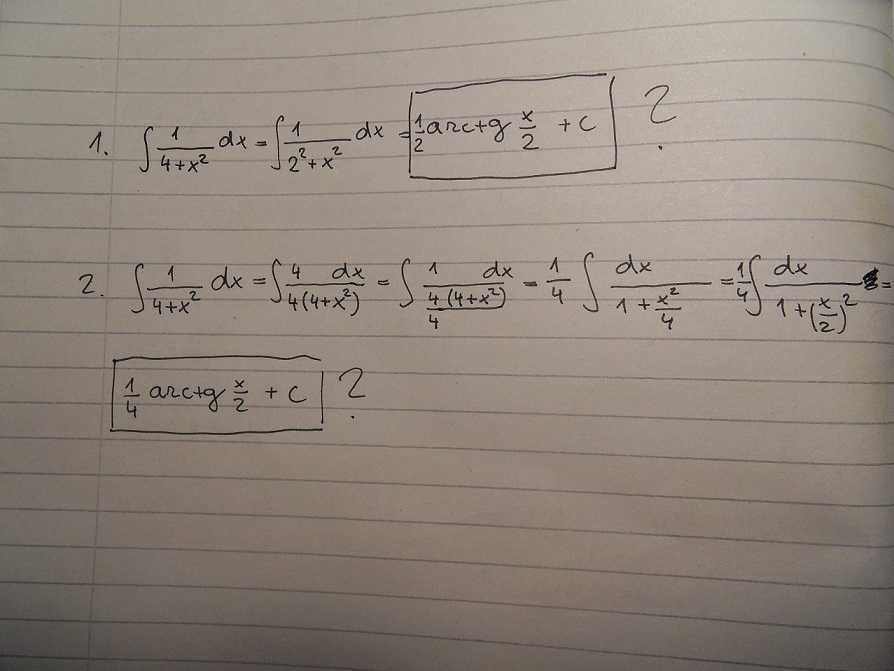 1. ∫ 1/(4+x²) dx = ∫ 1/(2²+x²) dx = 1/2 arctg x/2 + c ?
2. ∫ 1/(4+x²) dx = ∫ 4 dx/(4(4+x²)) = ∫ 1 dx/(4/4 (4+x²)/4) = 1/4 ∫ dx/(1+x²/4) = 1/4 ∫ dx/(1+(x/2)²) =
1/4 arctg x/2 + c ?